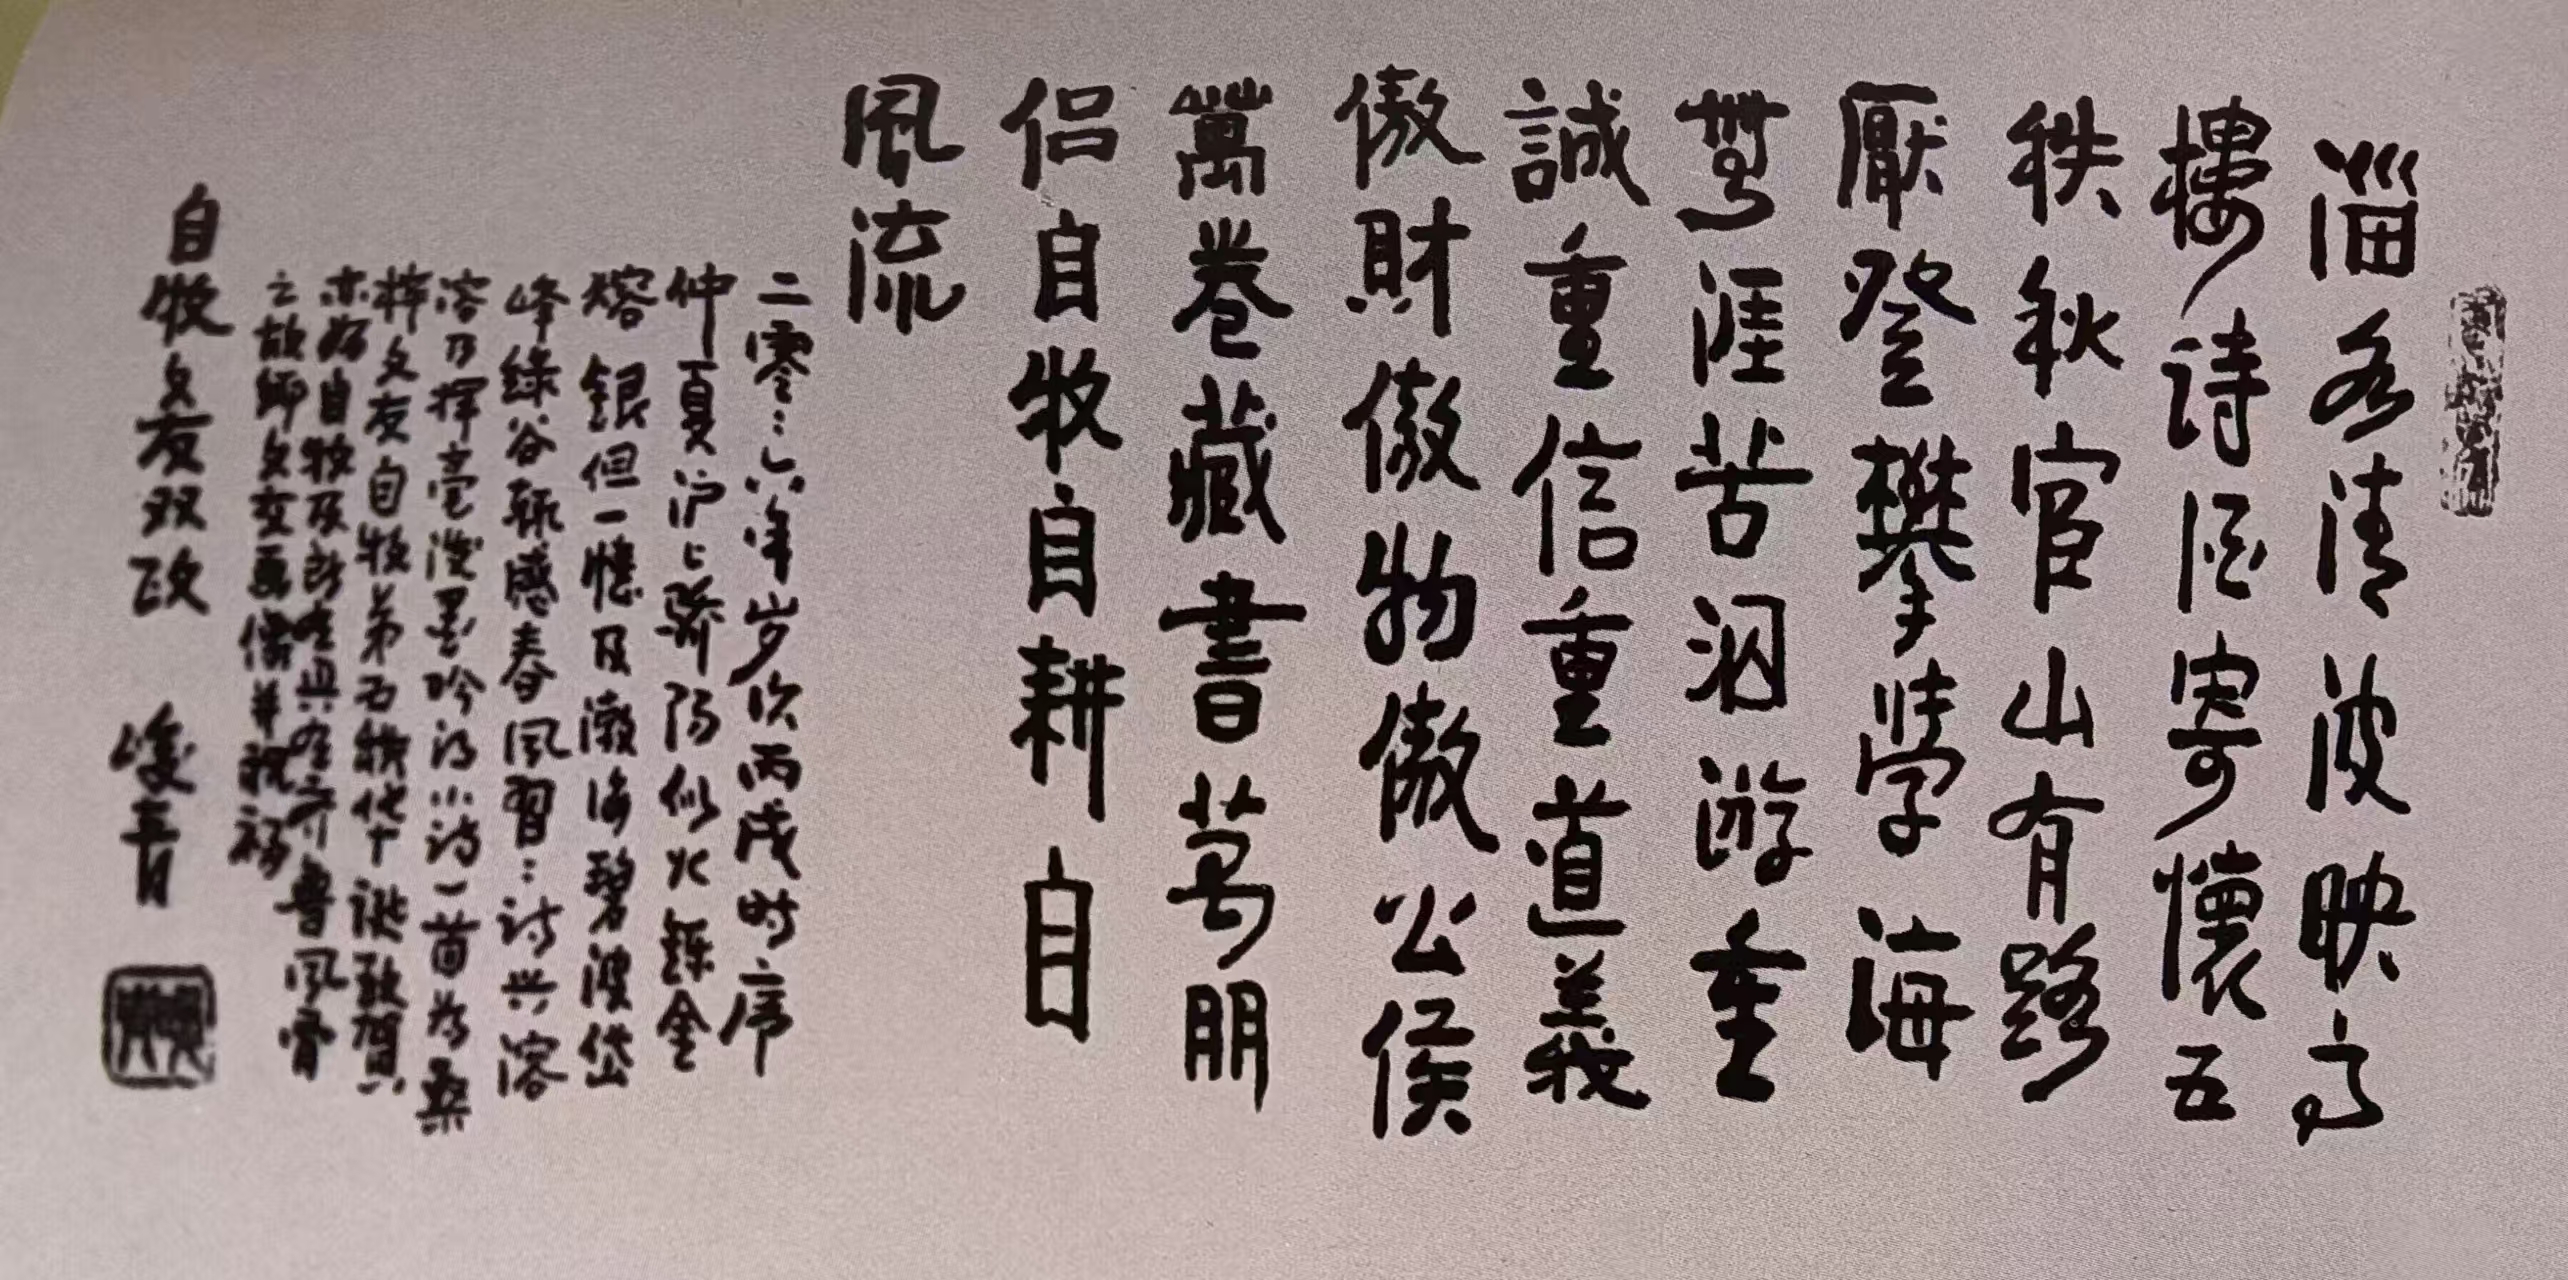 淄水清波映高
樓詩酒寄懷五
秩秋官山有路
厭登攀学海
無涯苦泅游重
誠重信重道義
傲財傲物傲公侯
萬卷藏書萬朋
侣自牧自耕自
風流
二零零六年岁次丙戌时序
仲夏沪上骄阳似火铄金
熔银但一憶及渤海碧波岱
峰绿谷顿感春风習習诗兴溶
溶乃挥毫泼墨吟得小诗一首为桑
梓文友自牧弟五秩华诞致贺
亦为自牧及与齐鲁风骨
之故乡文友画像并祝福
自牧文友双政
峻青